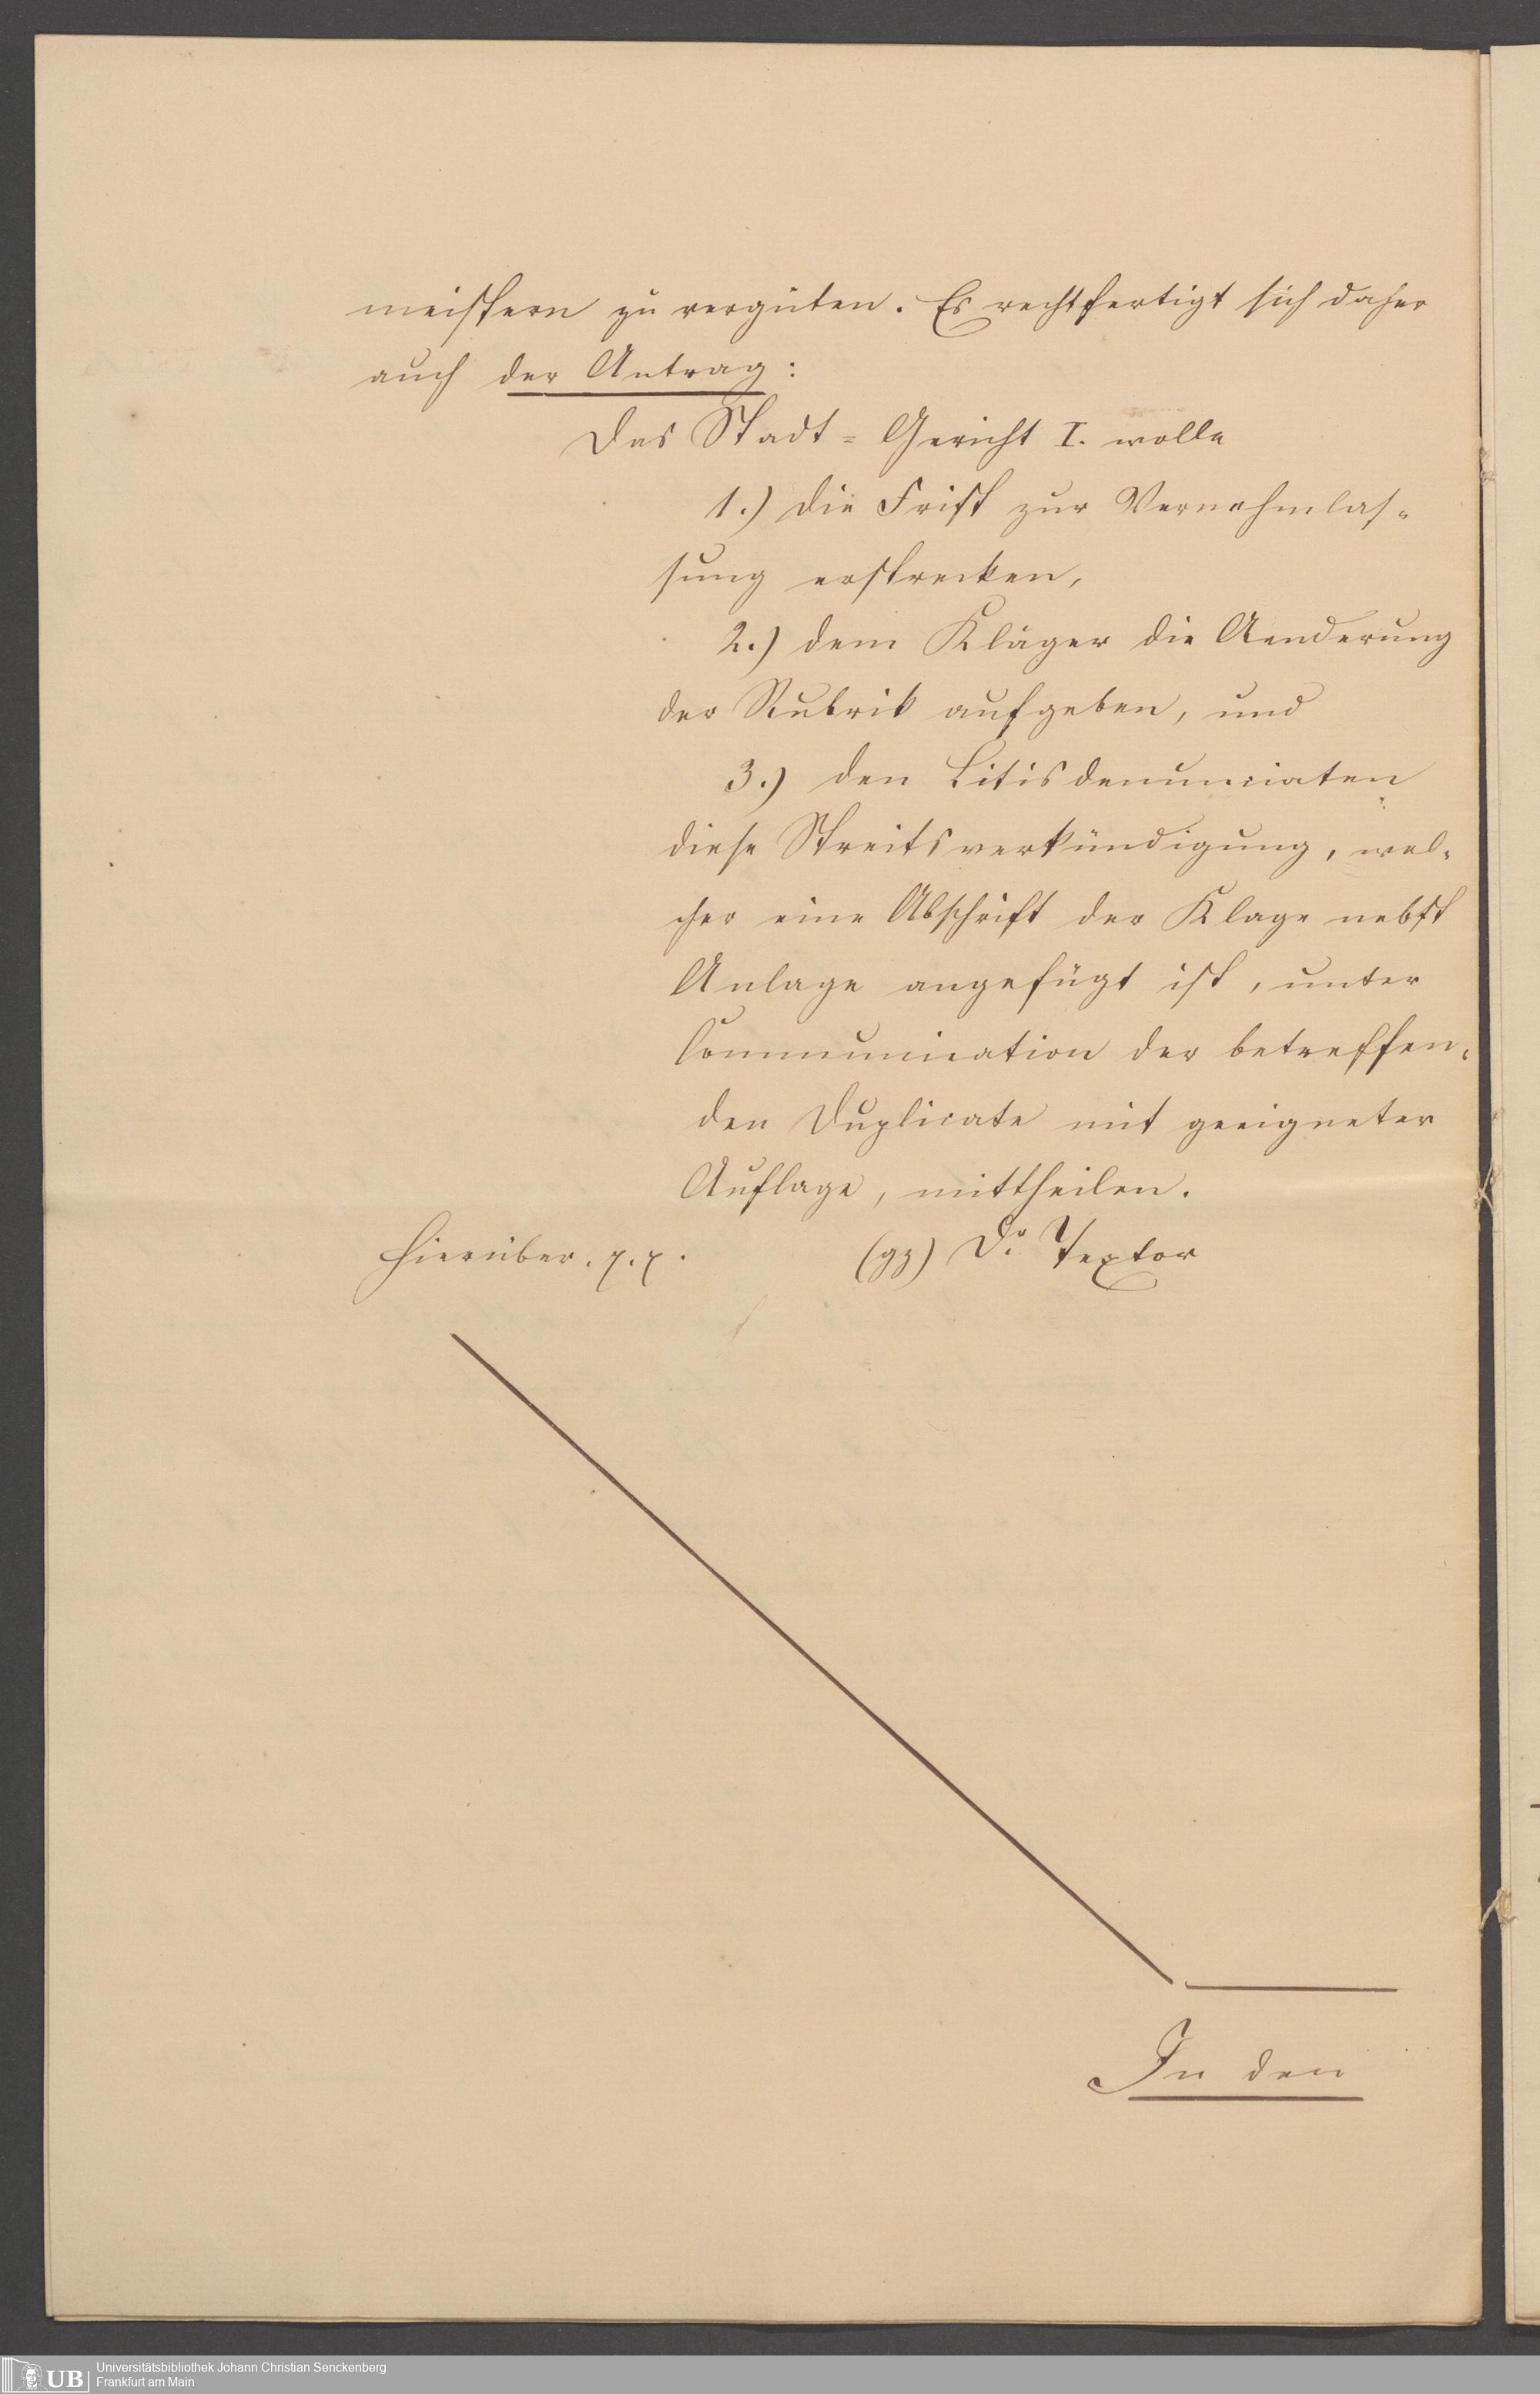 meistern zu vergüten. Es rechtfertigt sich daher
auch der Antrag:
Das Stadt=Gericht I. wolle
1.) die Frist zur Vernehmlas-
sung erstrecken,
2.) dem Kläger die Aenderung
der Rubrik aufgeben, und
3.) den Litisdenunciaten
diese Streitsverkündigung, wel-
cher eine Abschrift der Klage nebst
Anlage angefügt ist, unter
Communication der betreffen-
den Duplicate mit geeigneter
Auflage, mittheilen.
Hierüber. p. p. (gz) Dr. Textor
In den
UB
Universitätsbibliothek Johann Christian Senckenberg
Frankfurt am Main